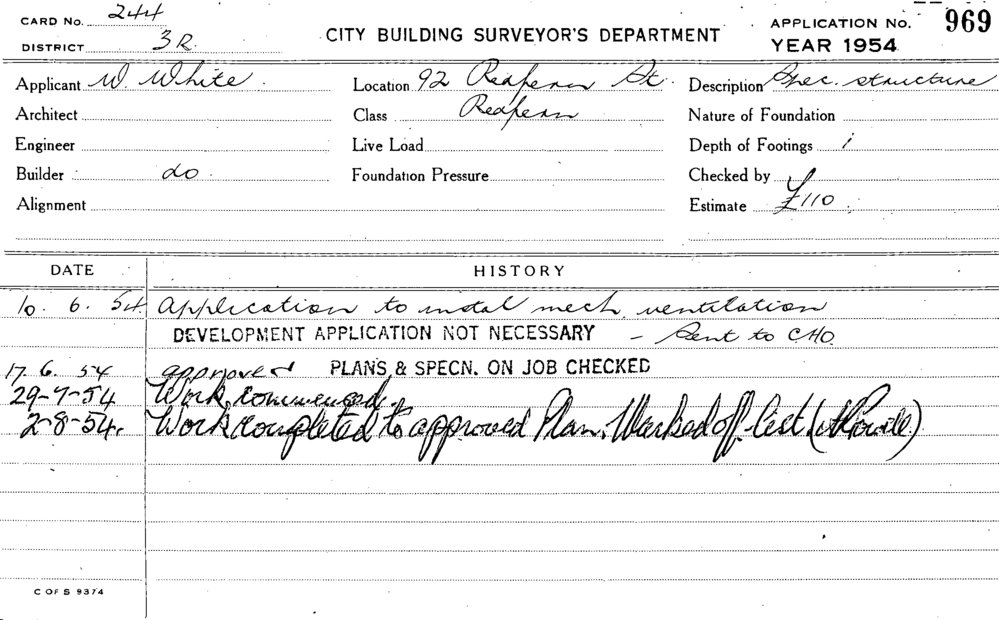 CARD No. 244
DISTRICT 3R
CITY BUILDING SURVEYOR'S DEPARTMENT
APPLICATION No. 969
YEAR 1954
Applicant W. White Location 92 Redfern St. Description Spec. structure
Architect Class Redfern Nature of Foundation
Engineer Live Load Depth of Footings
Builder do Foundation Pressure Checked by
Alignment Estimate £110
DATE HISTORY
10. 6. 54 Application to instal mech. ventilation
DEVELOPMENT APPLICATION NOT NECESSARY - Sent to CHO.
17. 6. 54 approved PLANS & SPECN. ON JOB CHECKED
29-7-54 Work commenced.
2-8-54. Work completed to approved Plan. Marked off list.
C OF S 9374